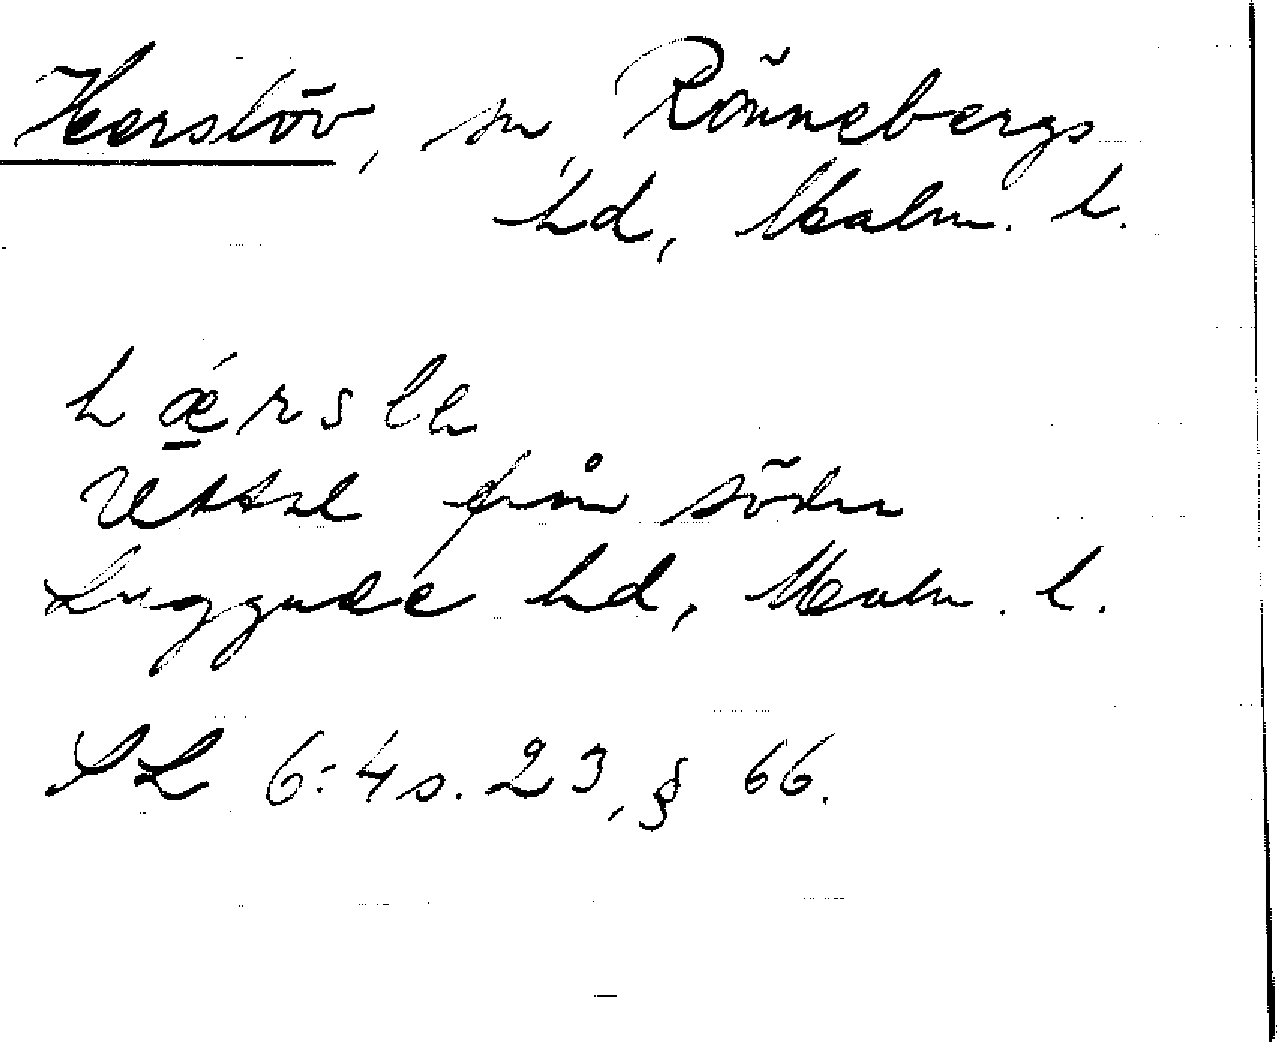 Härslöv, sn, Rönnebergs
hd, Malm. l.
hǽrslek
Uttal från södra
Luggude hd, Malm. l.
SL 6:4 s. 23, § 66.